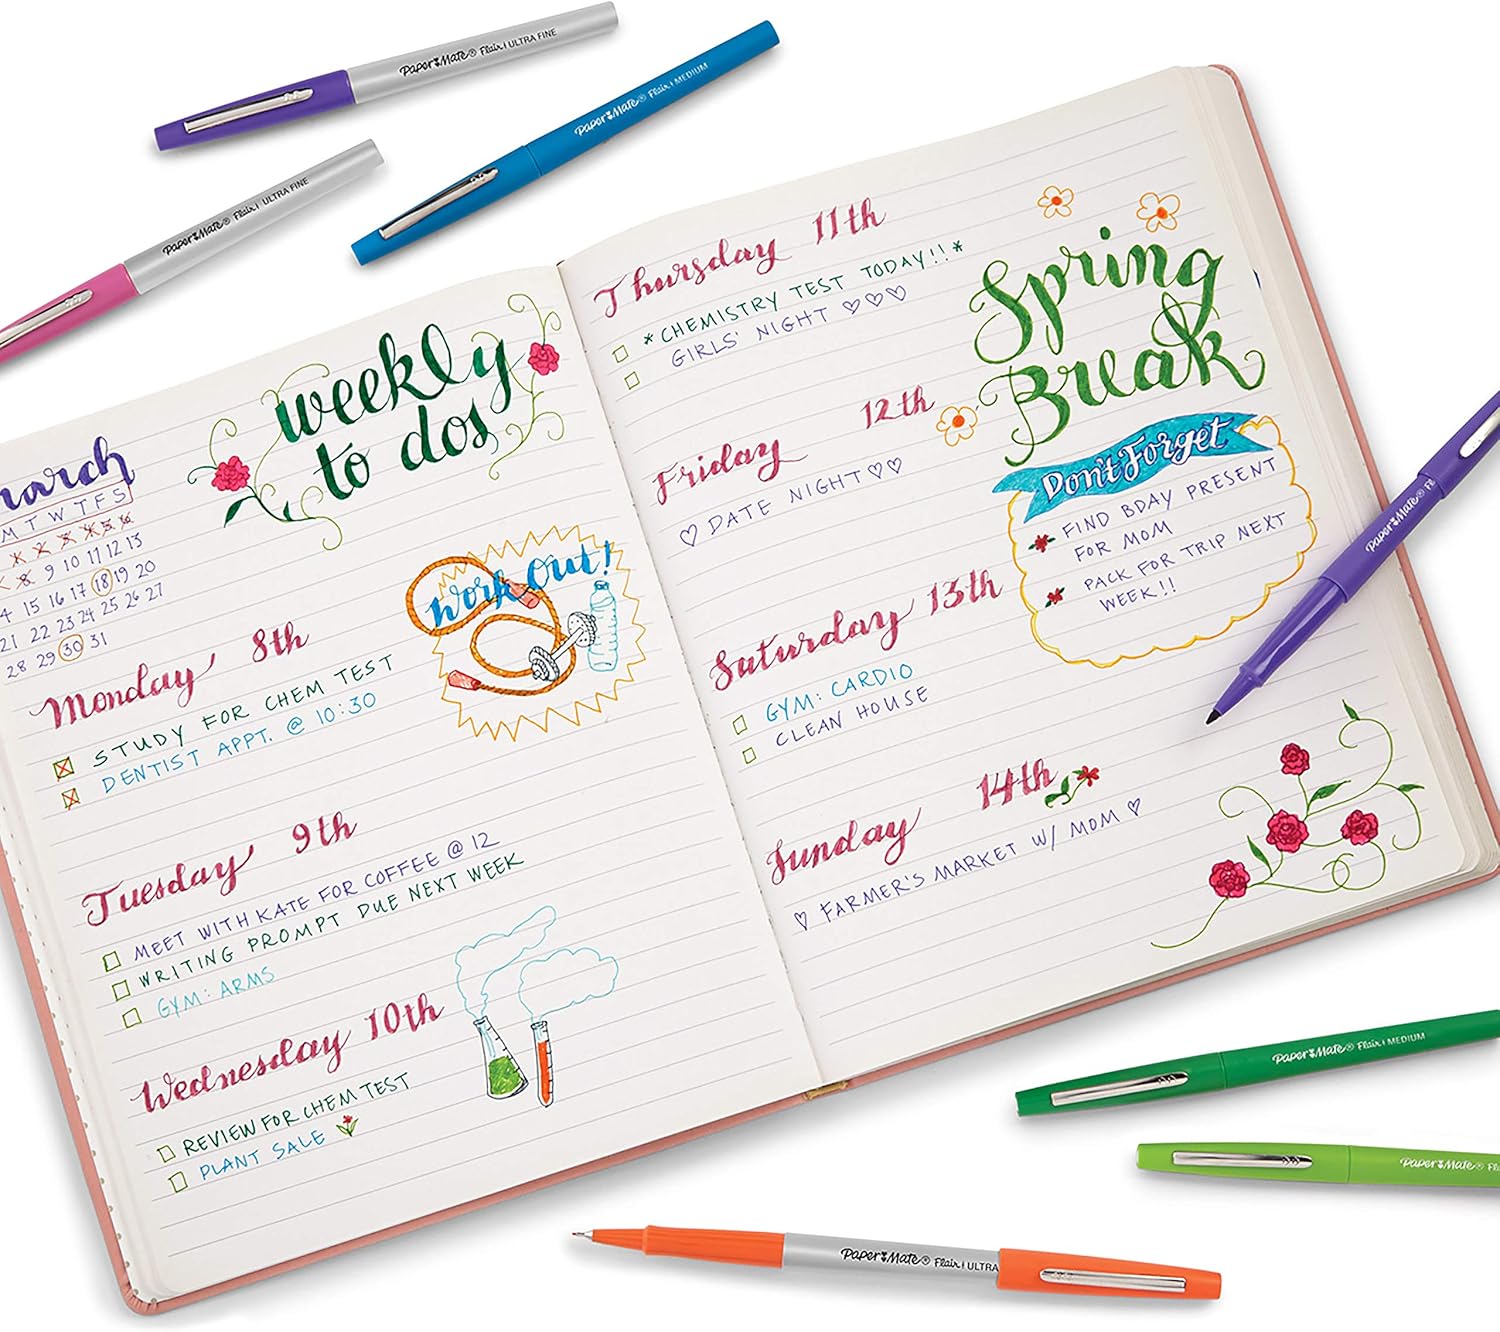 PAPER MATE® Flair! ULTRA FINE
PAPER MATE® Flair! MEDIUM
PAPER MATE® Flair! ULTRA FINE
weekly
to dos
arch
M T W T F S
8 9 10 11 12 13
4 15 16 17 18 19 20
21 22 23 24 25 26 27
28 29 30 31
Work Out!
Monday 8th
STUDY FOR CHEM TEST
DENTIST APPT. @ 10:30
Tuesday 9th
MEET WITH KATE FOR COFFEE @ 12
WRITING PROMPT DUE NEXT WEEK
GYM: ARMS
Wednesday 10th
REVIEW FOR CHEM TEST
PLANT SALE
Thursday 11th
*CHEMISTRY TEST TODAY!!*
GIRLS' NIGHT ♡♡♡
Friday 12th
♡ DATE NIGHT ♡♡
Saturday 13th
GYM: CARDIO
CLEAN HOUSE
Sunday 14th
♡ FARMER'S MARKET W/ MOM ♡
Spring
Break
Don't Forget
FIND BDAY PRESENT
FOR MOM
PACK FOR TRIP NEXT
WEEK!!
PAPER MATE® Fl
PAPER MATE® Flair! MEDIUM
PAPER MATE® F
PAPER MATE® Flair! ULTRA